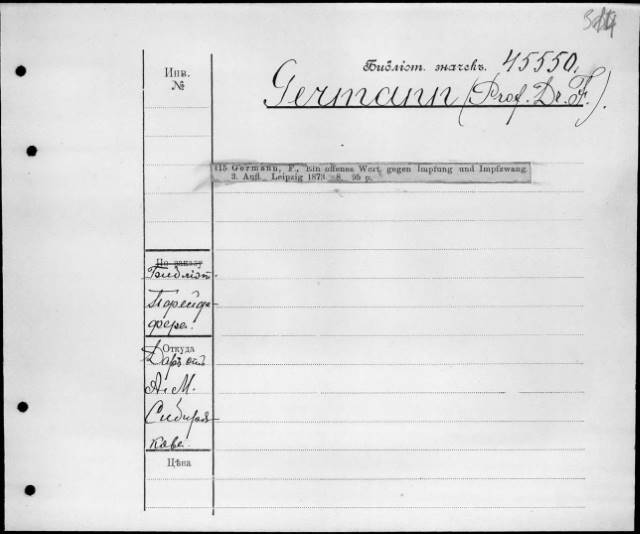 Библіот. значекъ. 45550.
Инв.
№
Germann (Prof. Dr. F.).
415 Germann, F., Ein offenes Wort gegen Impfung und Impfzwang.
3. Aufl. Leipzig 1873 8. 95 p.
По заказу
Библіот.
Откуда
Даръ отъ
А. М.
Сибиря-
кова.
Цѣна